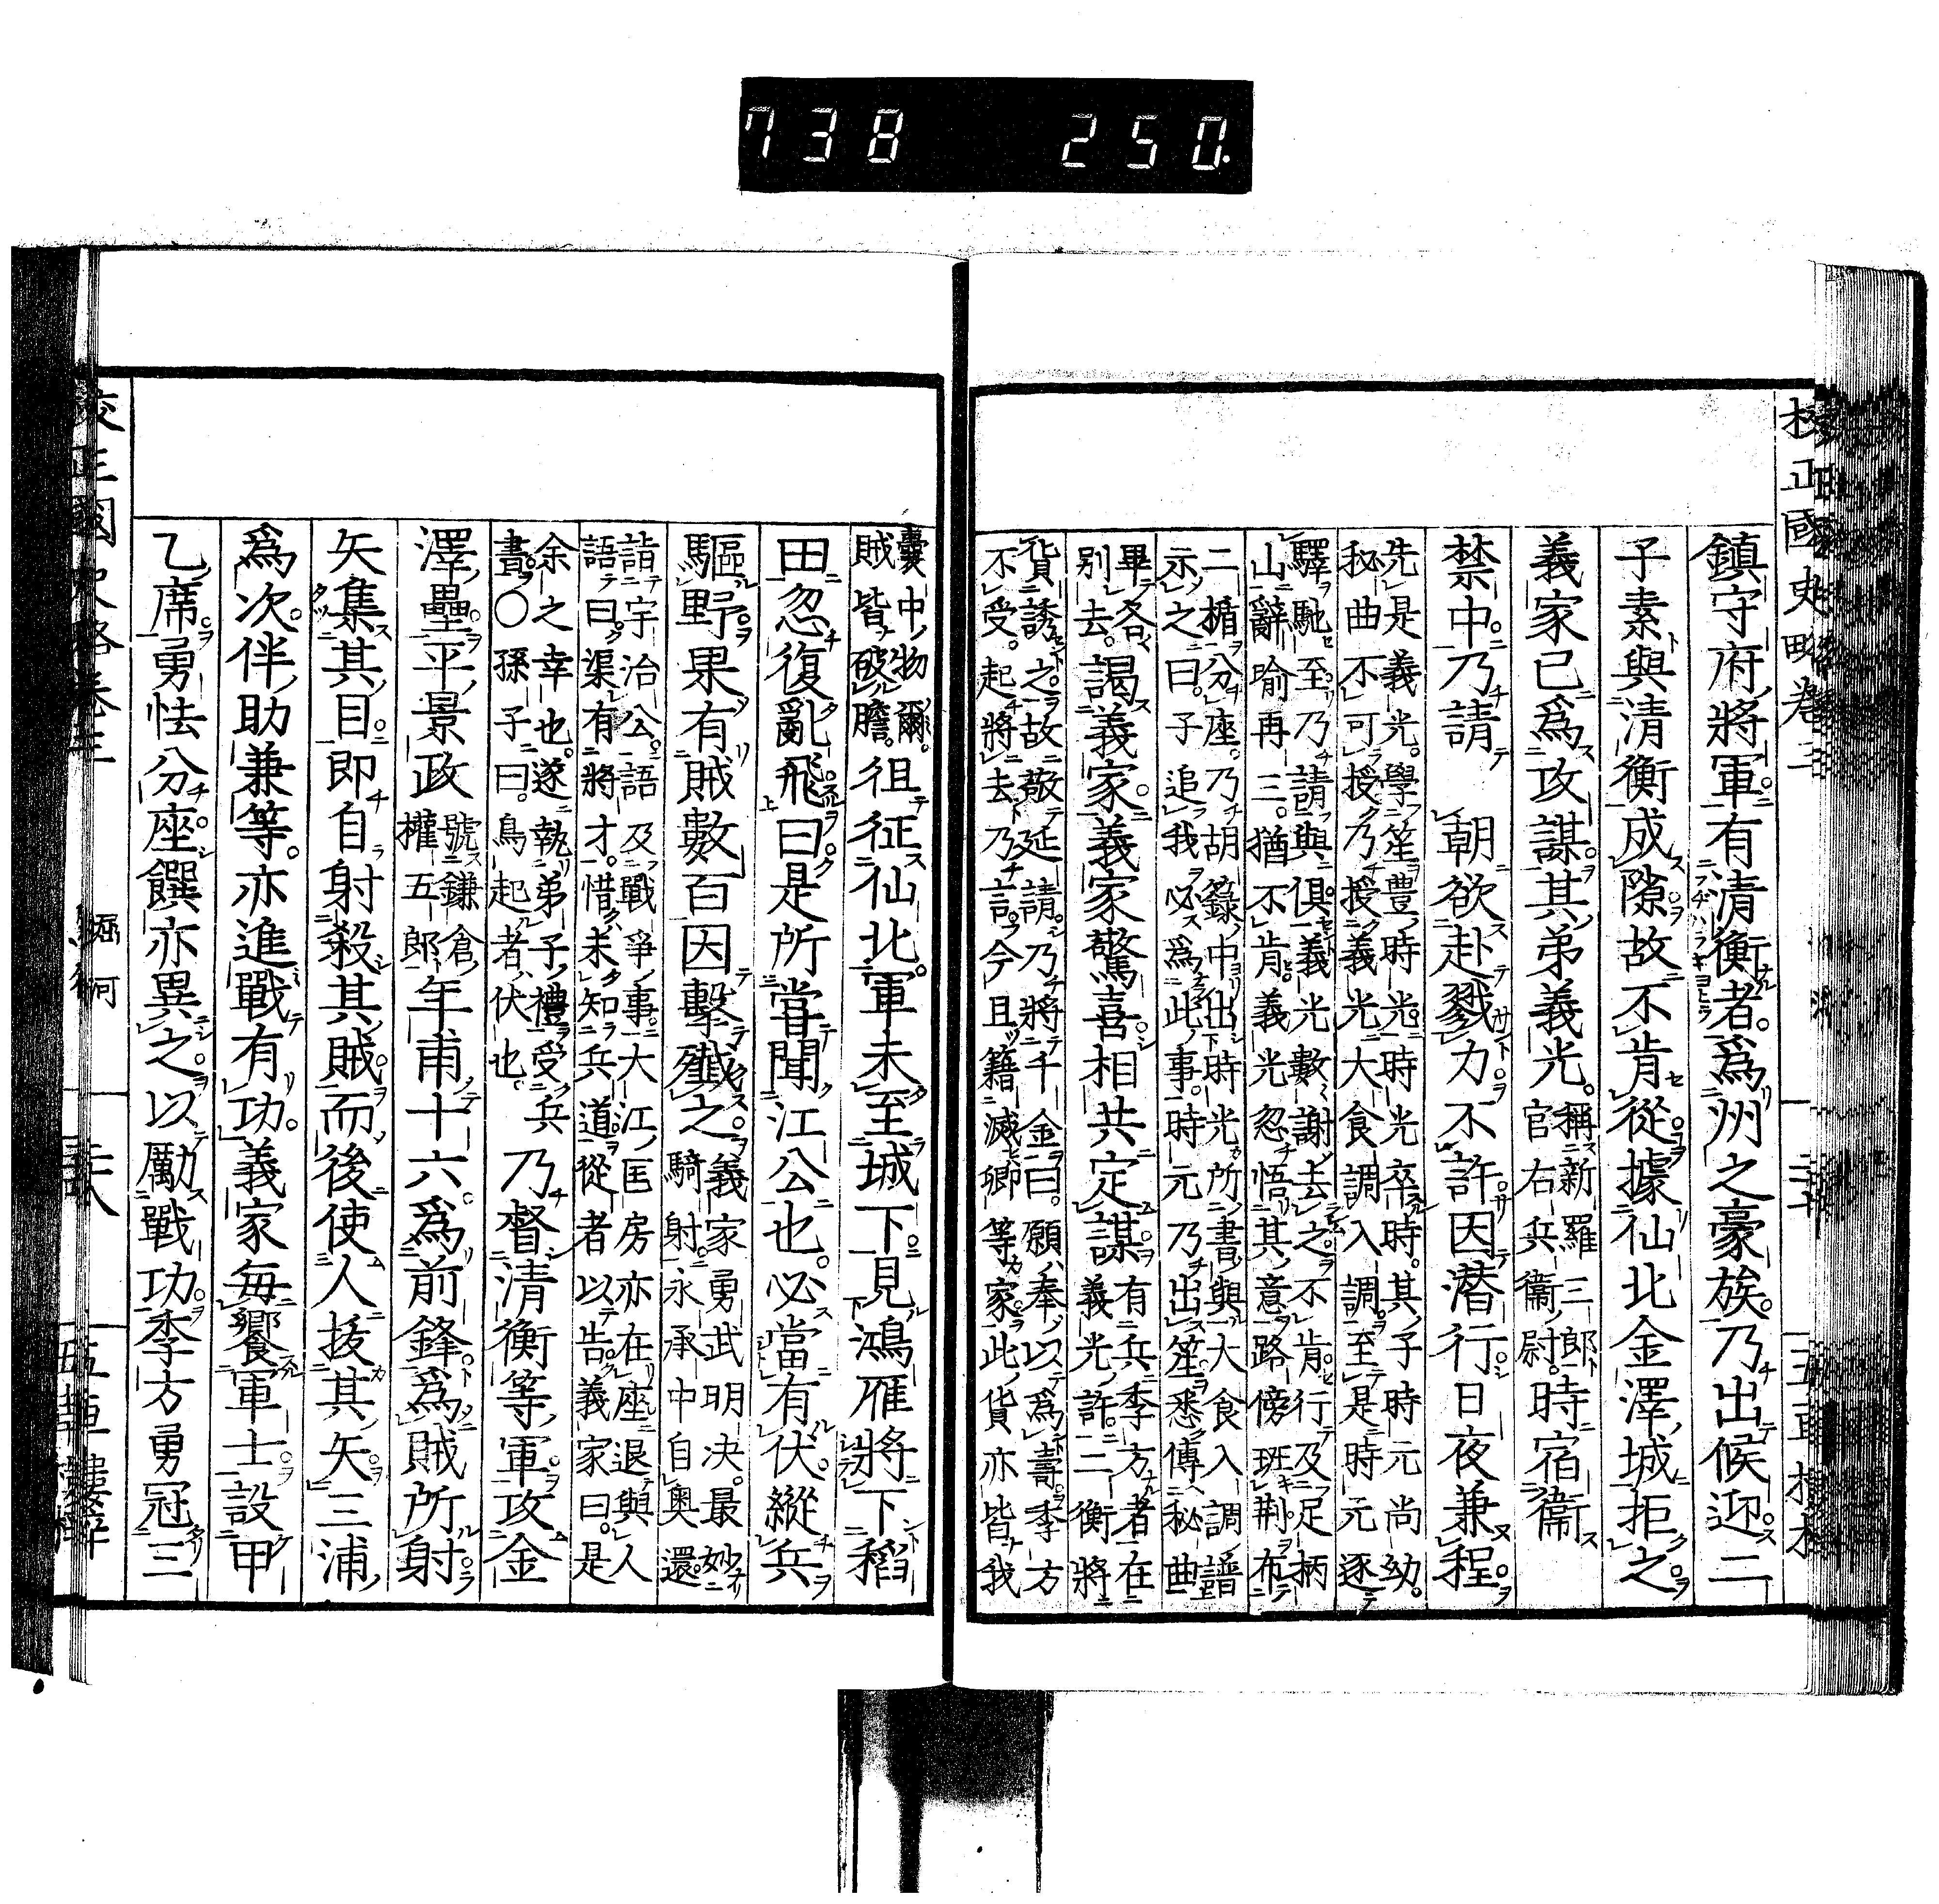 738 250.
校正國史略卷三
鎮守府將軍有清衡者爲州之豪族乃出候迎二
子素與清衡成隙故不肯從據仙北金澤城拒之
義家已爲攻謀其弟義光稱新羅三郎
官右兵衞尉時宿衞
禁中乃請 朝欲赴戮力不許因潜行日夜兼程
先是義光學笙豊時光時光卒時其子時元尚幼
秘曲不可授乃授義光大食調入調至是時元逐
驛馳至乃請與俱義光數謝去之不肯行及足柄
山辭喻再三猶不肯義光忽悟其意路傍班荆布
二楯分座乃胡籙中出時光所書與大食入調譜
示之曰子追我必爲此事時元乃出笙悉傳秘曲
畢各
別去謁義家義家驚喜相共定謀有兵季方者在
義光許二衡將
貨誘之故敬延請乃將千金曰願奉以爲壽季方
不受起將去乃言今且籍滅卿等家此貨亦皆我
囊中物爾
賊皆破膽徂征仙北軍未至城下見鴻雁將下稻
田忽復亂飛曰是所嘗聞江公也必當有伏縱兵
驅野果有賊數百因擊殲之義家勇武明决最妙
騎射永承中自奧還
詣宇治公語及戰爭事大江匡房亦在座退與人
語曰渠有將才惜未知兵道從者以告義家曰是
余之幸也遂執弟子禮受兵
書○孫子曰鳥起者伏也乃督清衡等軍攻金
澤壘平景政號鎌倉
權五郎年甫十六爲前鋒爲賊所射
矢集其目即自射殺其賊而後使人拔其矢三浦
爲次伴助兼等亦進戰有功義家每饗軍士設甲
乙席勇怯分座饌亦異之以勵戰功季方勇冠三
校正國史略卷三 堀河